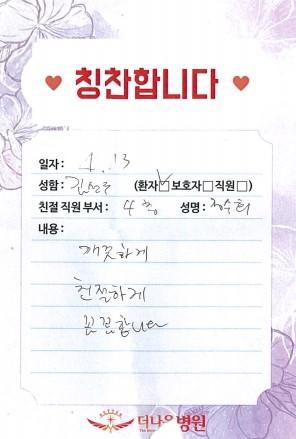 칭찬합니다
일자: 1. 13
성함: (환자☑ 보호자□ 직원□)
친절 직원 부서: 4층 성명: 정수희
내용:
깨끗하게
친절하게
꼼꼼합니다
더나은병원